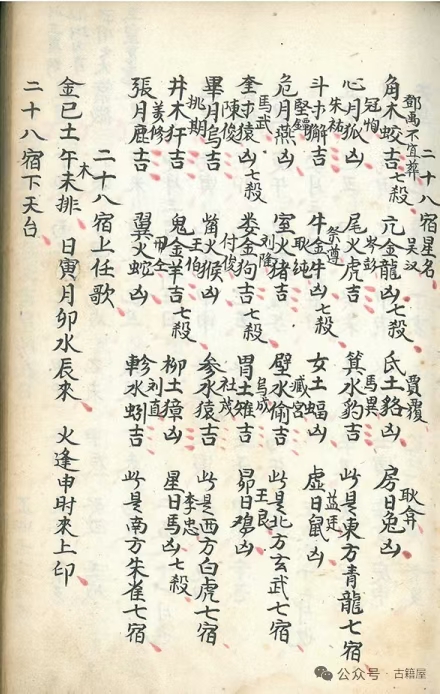 二十八宿星名
鄧禹不宜葬 吴汉 賈覆 耿弇
角木蛟吉七殺 亢金龍凶七殺 氐土貉凶 房日兔凶
冠恂 岑彭 馬異
心月狐凶 尾火虎吉 箕水豹吉 此是東方青龍七宿
朱祐 祭遵 蓋廷
斗木獬吉 牛金牛凶七殺 女土蝠凶 虛日鼠凶
堅鐔 耿純 臧宮
危月燕凶 室火猪吉 壁水偷吉 此是北方玄武七宿
馬武 刘隆 烏成 王良
奎木猿凶七殺 娄金狗吉七殺 胃土雉吉 昴日鸡凶
陳俊 付俊 杜茂
畢月乌吉 觜火猴凶 参水猿吉 此是西方白虎七宿
挑期 王伯 李忠
井木犴吉 鬼金羊吉七殺 柳土獐凶 星日馬凶七殺
姜修 刘直
張月鹿吉 翼火蛇凶 軫水蚓吉 此是南方朱雀七宿
二十八宿上任歌
金巳土午木未排 日寅月卯水辰來 火逢申时來上印
二十八宿下天台
公众号·古籍屋